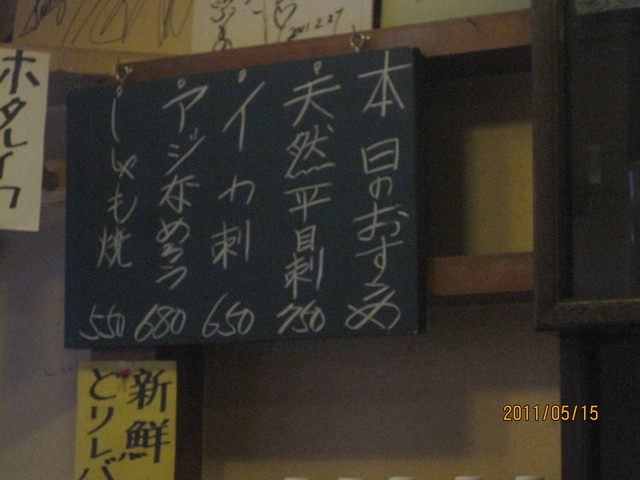 本日のおすゝめ
・天然平目刺 750
・イカ刺 650
・アジなめろう 680
・ししゃも焼 550
ホタルイカ
新鮮
とりレバ
2011.2.27
2011/05/15